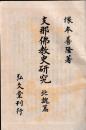 塚本善隆著
支那佛教史研究
北魏篇
弘文堂刊行